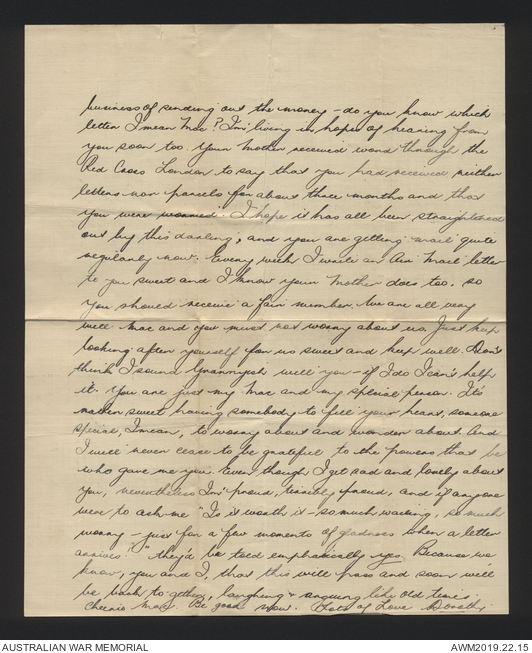 business of sending out the money - do you know which
letter I mean Mac? I'm living in hopes of hearing from
you soon too. Your Mother received word through the
Red Cross London to say that you had received neither
letters nor parcels for about three months and that
you were worried. I hope it has all been straightened
out by this darling, and you are getting mail quite
regularly now. Every week I write an Air Mail letter
to you sweet and I know your Mother does too, so
you should receive a fair number. We are all very
well Mac and you must not worry about us. Just keep
looking after yourself for us sweet and keep well. Don't
think I sound Grannyish will you - if I do I can't help
it. You are just my Mac and my special person. It's
sweet having somebody to fill your heart, someone
special, I mean, to worry about and wonder about. And
I will never cease to be grateful to the powers that be
who gave me you. Even though I get sad and lonely about
you, nevertheless I'm proud, terribly proud, and if anyone
were to ask me "Is it worth it - so much waiting, so much
worry - just for a few moments of gladness when a letter
arrives" they'd be told emphatically yes. Because we
know, you and I, that this will pass and soon we'll
be back together, laughing & arguing like old times.
Cheerio Mac. Be good now. Lots of Love Dorothy.
AUSTRALIAN WAR MEMORIAL
AWM2019.22.15